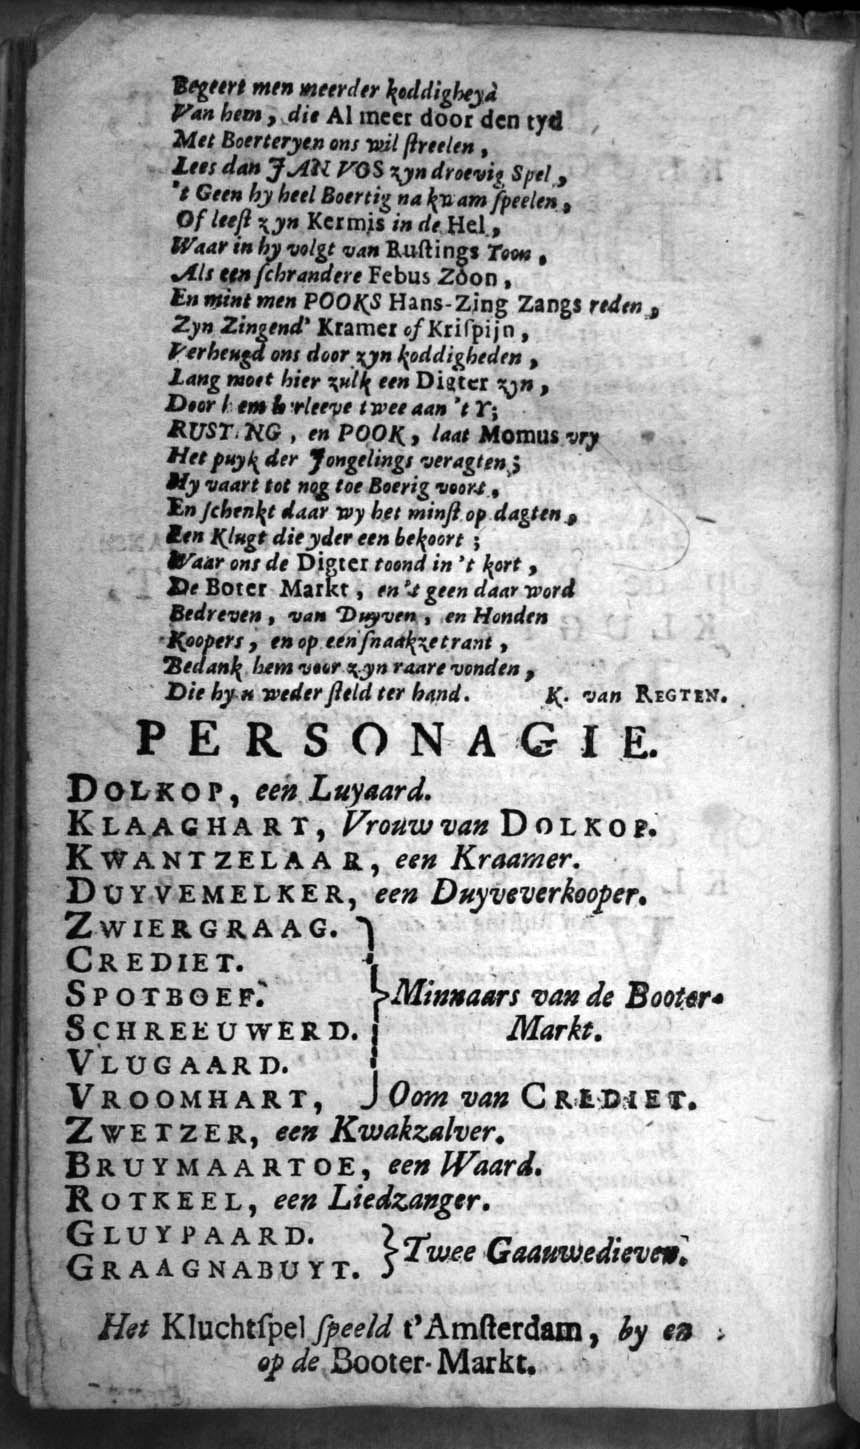 Begeert men meerder koddigheyd
Van hem, die Al meer door den tyd
Met Boerteryen ons wil ſtreelen,
Lees dan JAN VOS zyn droevig Spel,
't Geen hy heel Boertig na kwam ſpeelen,
Of leeſt zyn Kermis in de Hel,
Waar in hy volgt van Ruſtings Toon,
Als een ſchrandere Febus Zoon,
En mint men POOKS Hans-Zing Zangs reden,
Zyn Zingend' Kramer of Kriſpijn,
Verheugd ons door zyn koddigheden,
Lang moet hier zulk een Digter zyn,
Door hem herleeve twee aan 't Y;
RUSTING, en POOK, laat Momus vry
Het puyk der Jongelings veragten;
Hy vaart tot nog toe Boerig voort,
En ſchenkt daar wy het minſt op dagten,
Een Klugt die yder een bekoort;
Waar ons de Digter toond in 't kort,
De Boter Markt, en 't geen daar word
Bedreven, van Duyven, en Honden
Koopers, en op een ſnaakze trant,
Bedank hem voor zyn raare vonden,
Die hy u weder ſteld ter hand. K. van REGTEN.
PERSONAGIE.
DOLKOP, een Luyaard.
KLAAGHART, Vrouw van DOLKOP.
KWANTZELAAR, een Kraamer.
DUYVEMELKER, een Duyveverkooper.
ZWIERGRAAG.
CREDIET.
SPOTBOEF. } Minnaars van de Booter-
SCHREEUWERD. Markt.
VLUGAARD.
VROOMHART, Oom van CREDIET.
ZWETZER, een Kwakzalver.
BRUYMAARTOE, een Waard.
ROTKEEL, een Liedzanger.
GLUYPAARD. } Twee Gaauwedieven.
GRAAGNABUYT.
Het Kluchtſpel ſpeeld t'Amſterdam, by en
op de Booter-Markt.